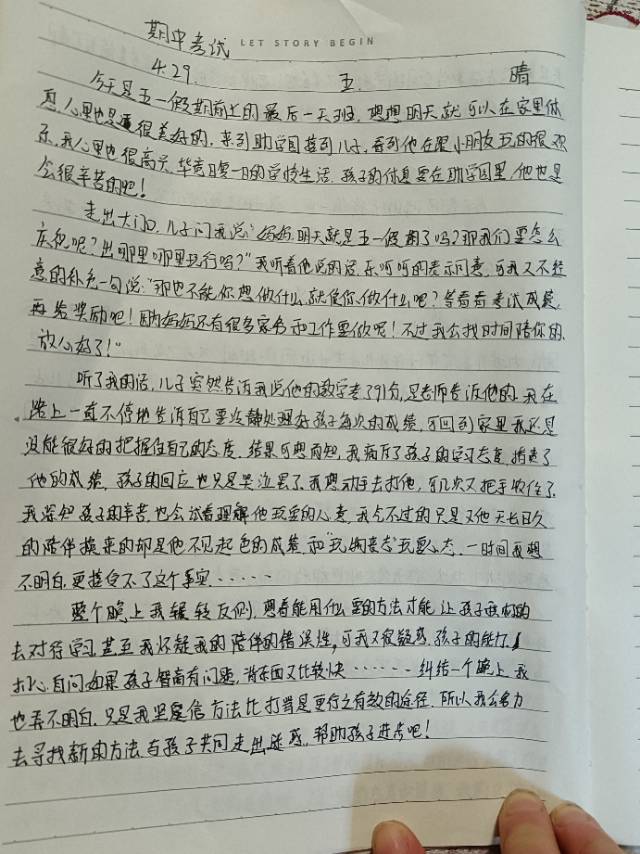 期中考试
LET STORY BEGIN
4.29. 五 晴
今天是五一假期前上的最后一天班,想想明天就可以在家里休
息,心里也是很美好的,来到助学园接到儿子,看到他在跟小朋友玩的很欢
乐,我心里也很高兴,毕竟日复一日的学校生活,孩子的休息要在助学园里,他也是
会很辛苦的吧!
走出大门口,儿子问我说:"妈妈,明天就是五一假期了吗?那我们要怎么
庆祝呢?出哪里哪里玩行吗?"我听着他说的话,乐呵呵的表示同意,可我又不经
意的补充一句说:"那也不能你想做什么就使你做什么吧?等看看考试成绩,
再给奖励吧!因为妈妈还有很多家务和工作要做呢!不过我会找时间陪你的,
放心好了!"
听了我的话,儿子突然告诉我说他的数学考了91分,是老师告诉他的,我在
路上一直不停地告诉自己要冷静处理好孩子每次的成绩,可回到家里我还是
没能很好的把握住自己的态度,结果可想而知,我痛斥了孩子的学习态度,指责了
他的成绩,孩子的回应也只是哭泣罢了,我想动手去打他,可几次又把手收住了,
我深知孩子的辛苦,也会试着理解他玩耍的心意,我气不过的只是又他天长日久
的陪伴换来的却是他不见起色的成绩,和"玩物丧志"玩耍心态,一时间我想
不明白,更接受不了这个事实……
整个晚上我辗转反侧,想着能用什么的方法才能让孩子积极的
去对待学习,甚至我怀疑我的陪伴的错误性,可我又很疑惑,孩子的能力,
扪心自问如果孩子智商有问题,背东西又比较快……纠结一个晚上,我
也弄不明白,只是我坚信方法比打骂是更行之有效的途径,所以我会努力
去寻找新的方法,与孩子共同走出迷惑,帮助孩子进步吧!